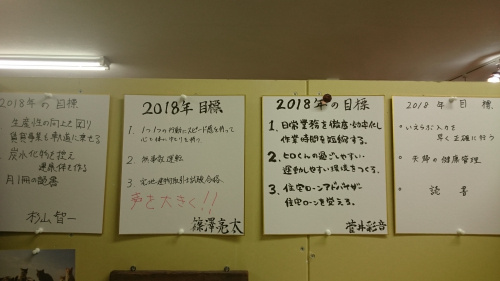 2018年の目標
生産性の向上を図り
賃貸事業も軌道に乗せる
炭水化物を控え
健康体を作る
月1冊の読書
杉山智一
2018年目標
1. 1つ1つの行動にスピード感を持って
2. 無事故運転
3. 宅地建物取引士試験合格
声を大きく!!
篠澤亮太
2018年の目標
1. 日常業務を徹底・効率化し
作業時間を短縮する。
2. ヒロくんの過ごしやすい・
運動しやすい環境をつくる。
3. 住宅ローンアドバイザー
住宅ローンを覚える。
菅井彩音
2018年 目標
・いえらぶ入力を
早く正確に行う
・夫婦の健康管理
・読書